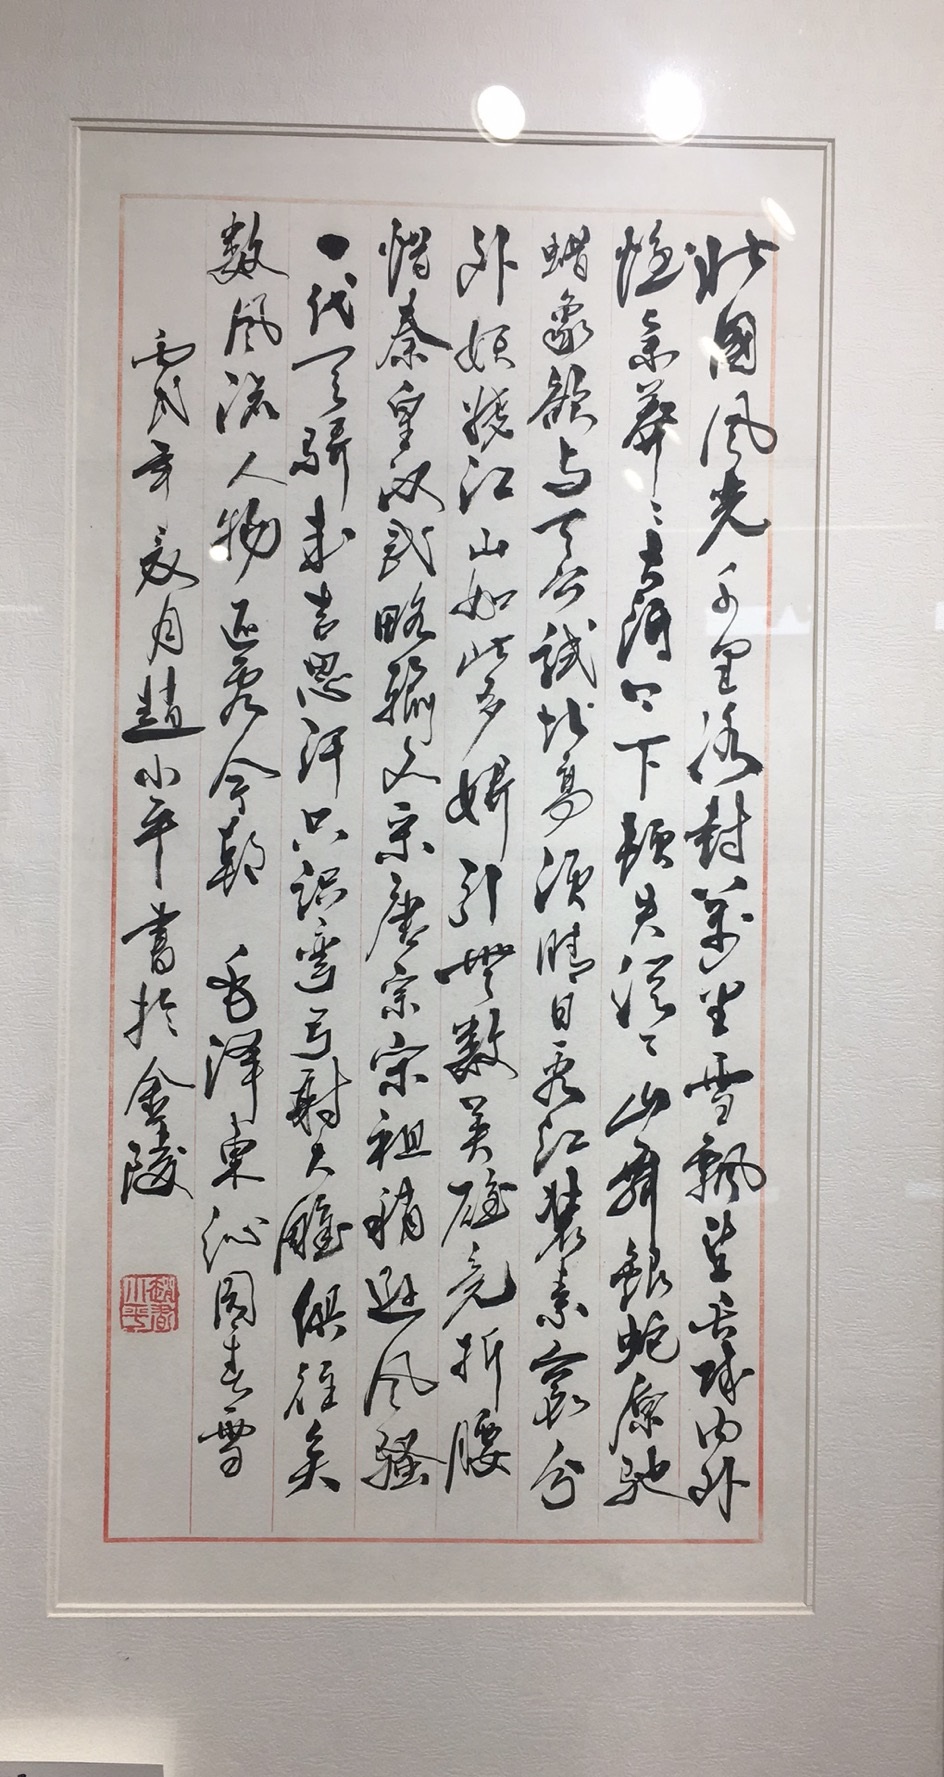 北國风光千里冰封萬里雪飘望长城内外
惟余莽〻大河上下顿失滔〻山舞银蛇原驰
蜡象欲与天公试比高须晴日看红装素裹分
外妖娆江山如此多娇引無数英雄竞折腰
惜秦皇汉武略输文采唐宗宋祖稍逊风骚
一代天骄成吉思汗只识弯弓射大雕俱往矣
数风流人物还看今朝 毛泽东沁园春雪
丙戌年辰月趙小平書於金陵